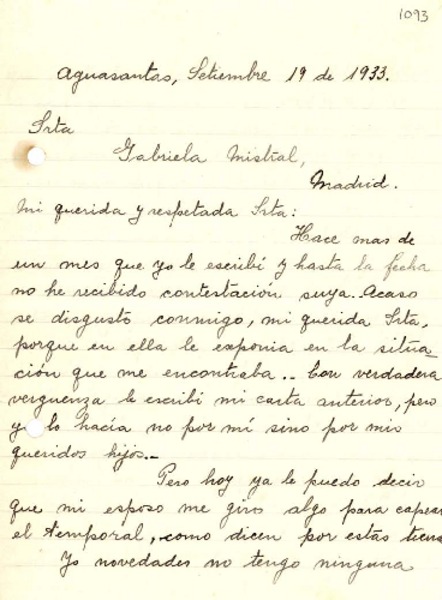 1093
Aguasantas, Setiembre 19 de 1933.
Srta
Gabriela Mistral,
Madrid.
Mi querida y respetada Srta:
Hace mas de
un mes que yo le escribí y hasta la fecha
no he recibido contestación suya.. Acaso
se disgusto conmigo, mi querida Srta,
porque en ella le exponia en la situa-
ción que me encontraba.. Con verdadera
verguenza le escribí mi carta anterior, pero
yo lo hacía no por mí sino por mis
queridos hijos.-
Pero hoy ya le puedo decir
que mi esposo me giro algo para capear
el temporal, como dicen por estas
Yo novedades no tengo ninguna